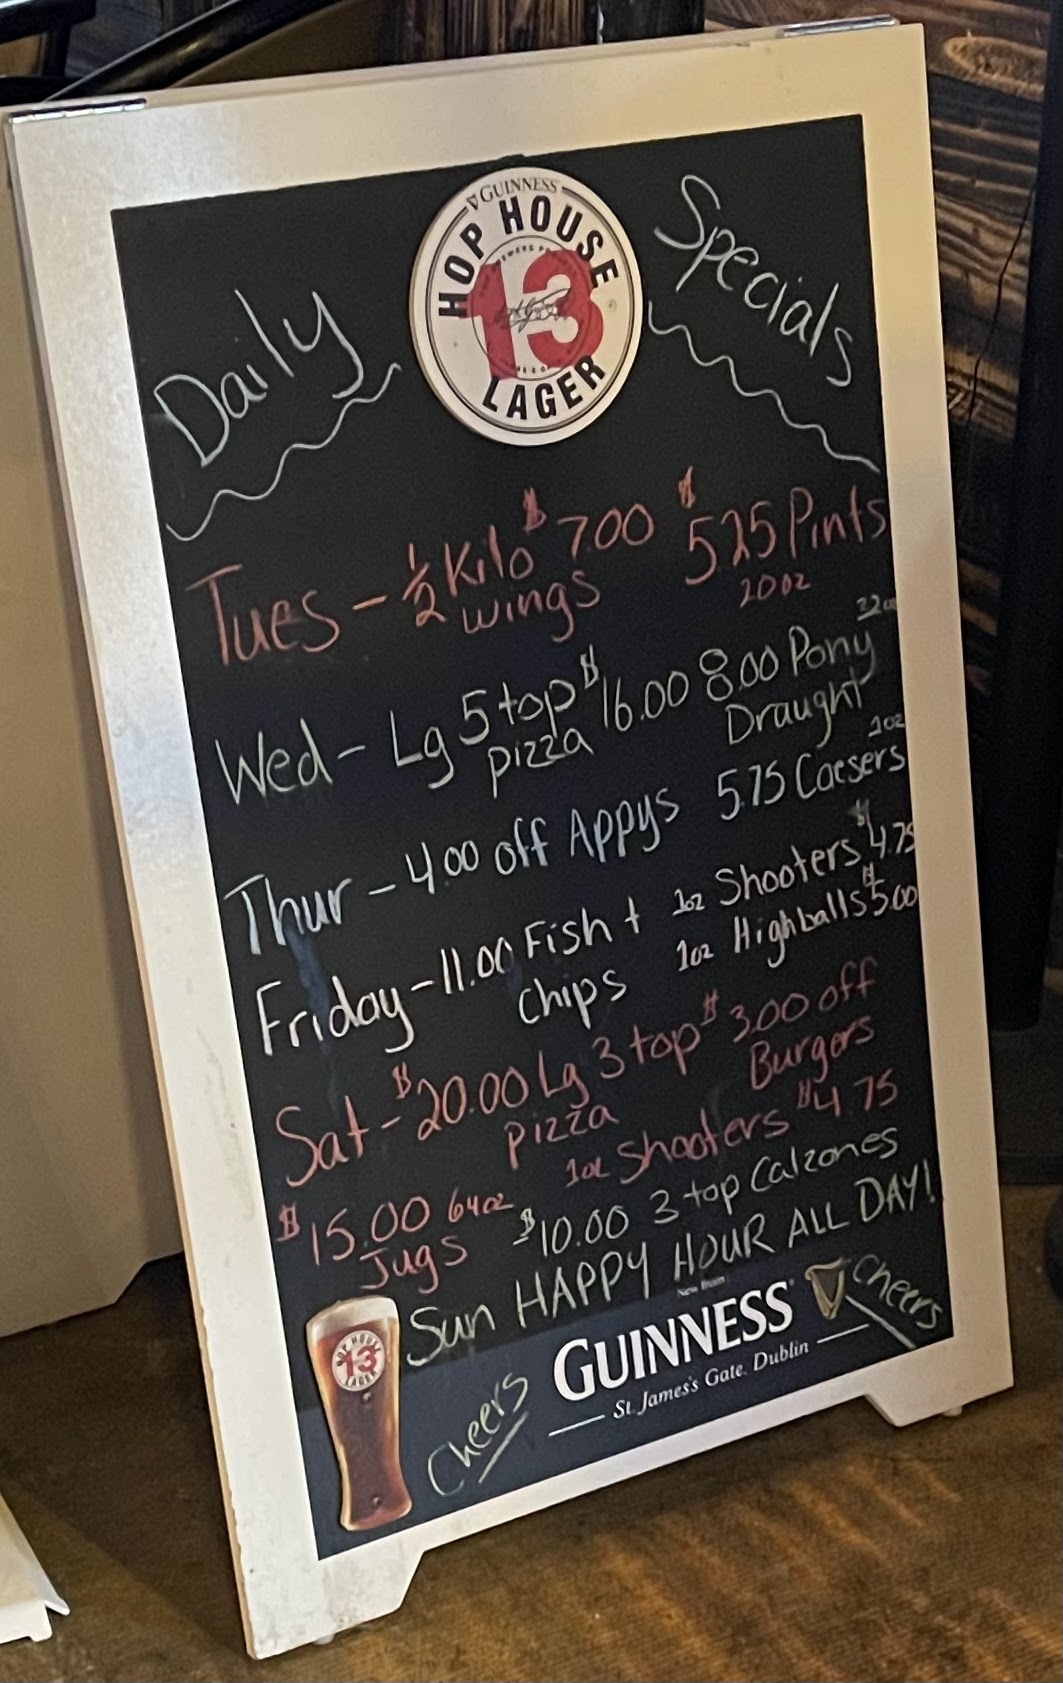 GUINNESS
HOP HOUSE
13
LAGER
Daily Specials
Tues - ½ Kilo $7.00 $5.25 Pints
wings 20oz
Wed - Lg 5 top $16.00 8.00 Pony
pizza Draught
Thur - 4.00 off Appys 5.75 Caesers
Friday - 11.00 Fish + 1oz Shooters $4.75
Chips 1oz Highballs $5.00
Sat - $20.00 Lg 3 top $3.00 off
pizza Burgers
1oz Shooters $4.75
$15.00 64oz $10.00 3 top Calzones
Jugs
Sun HAPPY HOUR ALL DAY!
HOP HOUSE
13
LAGER
Cheers
GUINNESS
St. James's Gate, Dublin
Cheers